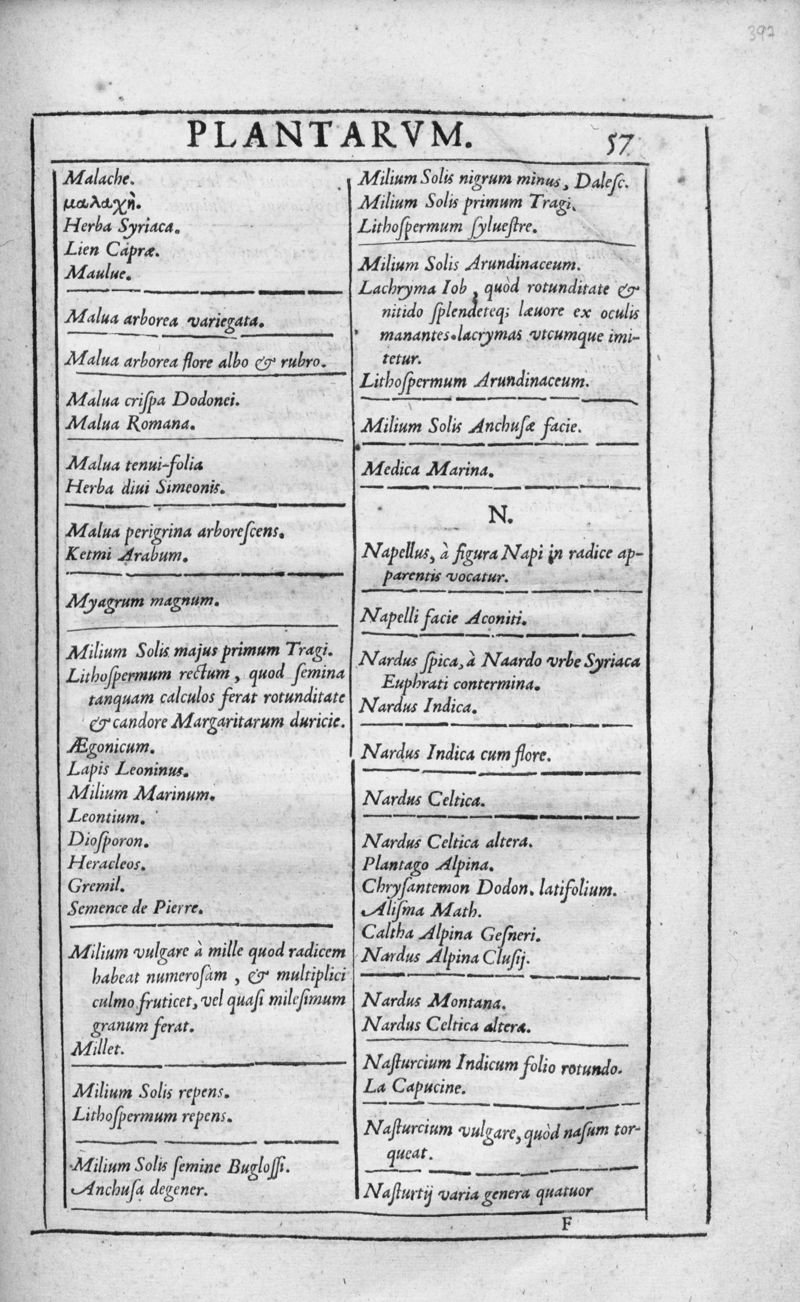 397
PLANTARVM.
57
Malache.
μαλαχὴ.
Herba Syriaca.
Lien Capræ.
Maulue.
Malua arborea variegata.
Malua arborea flore albo & rubro.
Malua criſpa Dodonei.
Malua Romana.
Malua tenui-folia
Herba diui Simeonis.
Malua perigrina arboreſcens.
Ketmi Arabum.
Myagrum magnum.
Milium Solis majus primum Tragi.
Lithoſpermum rectum, quod ſemina
tanquam calculos ferat rotunditate
& candore Margaritarum duricie.
Ægonicum.
Lapis Leoninus.
Milium Marinum.
Leontium.
Dioſporon.
Heracleos.
Gremil.
Semence de Pierre.
Milium vulgare à mille quod radicem
habeat numeroſam, & multiplici
culmo fruticet, vel quaſi mileſimum
granum ferat.
Millet.
Milium Solis repens.
Lithoſpermum repens.
Milium Solis ſemine Bugloſſi.
Anchuſa degener.
Milium Solis nigrum minus, Daleſc.
Milium Solis primum Tragi.
Lithoſpermum ſylueſtre.
Milium Solis Arundinaceum.
Lachryma Iob, quòd rotunditate &
nitido ſplendeteq; læuore ex oculis
manantes lacrymas vtcumque imi-
tetur.
Lithoſpermum Arundinaceum.
Milium Solis Anchuſæ facie.
Medica Marina.
N.
Napellus, à figura Napi in radice ap-
parentis vocatur.
Napelli facie Aconiti.
Nardus ſpica, à Naardo vrbe Syriaca
Euphrati contermina.
Nardus Indica.
Nardus Indica cum flore.
Nardus Celtica.
Nardus Celtica altera.
Plantago Alpina.
Chryſantemon Dodon. latifolium.
Aliſma Math.
Caltha Alpina Geſneri.
Nardus Alpina Cluſij.
Nardus Montana.
Nardus Celtica altera.
Naſturcium Indicum folio rotundo.
La Capucine.
Naſturcium vulgare, quòd naſum tor-
queat.
Naſturtij varia genera quatuor
F